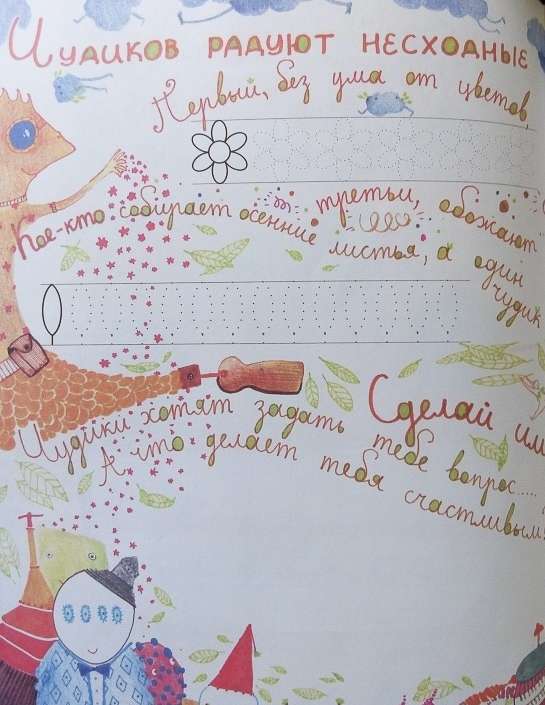 Чудиков радуют несходные
Первый, без ума от цветов,
третьи, обожают
Кое-кто собирает осенние листья, а один чудик
Сделай им
Чудики хотят задать тебе вопрос....
А что делает тебя счастливым